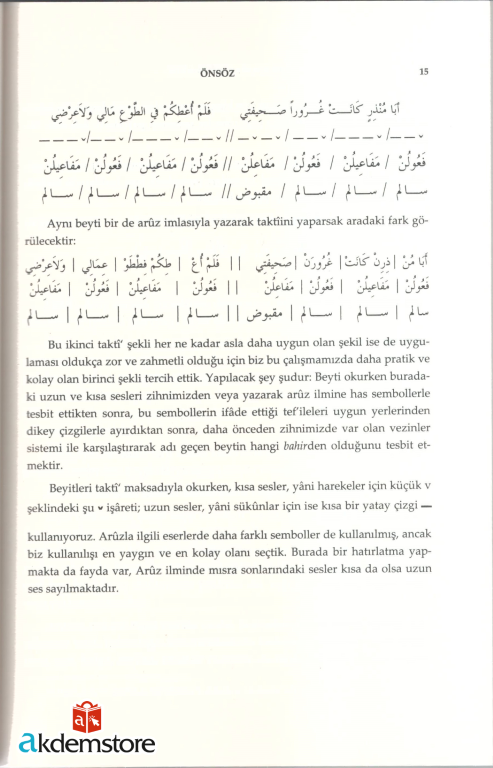 ÖNSÖZ 15
أَبَا مُنْذِرٍ كَانَـــتْ غُــرُوراً صَـحِـيفَتِي فَلَمْ أُعْطِكُمْ فِي الطَّوْعِ مَالِي وَلاَعِرْضِي
ــ ــ ــ ˅/ــ ــ ˅/ــ ــ ــ ˅/ــ ــ ˅ // ــ ˅ ــ ˅ /ــ ــ ˅ /ــ ــ ــ ˅ /ــ ــ ˅
فَعُولُنْ / مَفَاعِيلُنْ / فَعُولُنْ / مَفَاعِلُنْ // فَعُولُنْ / مَفَاعِيلُنْ / فَعُولُنْ / مَفَاعِيلُنْ
ســالم / ســالم / ســالم / مقبوض // ســالم / ســالم / ســالم / ســالم
Aynı beyti bir de arûz imlasıyla yazarak taktîini yaparsak aradaki fark gö-
rülecektir:
أَبَا مُنْ | ذِرِنْ كَانَتْ | غُرُورَنْ | صَحِيفَتِي || فَلَمْ أُعْ | طِكُمْ فِطْطَوْ | عِمَالِي | وَلاَعِرْضِي
فَعُولُنْ | مَفَاعِيلُنْ | فَعُولُنْ | مَفَاعِلُنْ || فَعُولُنْ | مَفَاعِيلُنْ | فَعُولُنْ | مَفَاعِيلُنْ
سالم | ســالم | ســالم | مقبوض || ســالم | ســالم | ســالم | ســالم
Bu ikinci taktî' şekli her ne kadar asla daha uygun olan şekil ise de uygu-
laması oldukça zor ve zahmetli olduğu için biz bu çalışmamızda daha pratik ve
kolay olan birinci şekli tercih ettik. Yapılacak şey şudur: Beyti okurken burada-
ki uzun ve kısa sesleri zihnimizden veya yazarak arûz ilmine has sembollerle
tesbit ettikten sonra, bu sembollerin ifâde ettiği tef'ileleri uygun yerlerinden
dikey çizgilerle ayırdıktan sonra, daha önceden zihnimizde var olan vezinler
sistemi ile karşılaştırarak adı geçen beytin hangi bahirden olduğunu tesbit et-
mektir.
Beyitleri taktî' maksadıyla okurken, kısa sesler, yâni harekeler için küçük v
şeklindeki şu ˅ işâreti; uzun sesler, yâni sükûnlar için ise kısa bir yatay çizgi —
kullanıyoruz. Arûzla ilgili eserlerde daha farklı semboller de kullanılmış, ancak
biz kullanılışı en yaygın ve en kolay olanı seçtik. Burada bir hatırlatma yap-
makta da fayda var, Arûz ilminde mısra sonlarındaki sesler kısa da olsa uzun
ses sayılmaktadır.
a
akdemstore